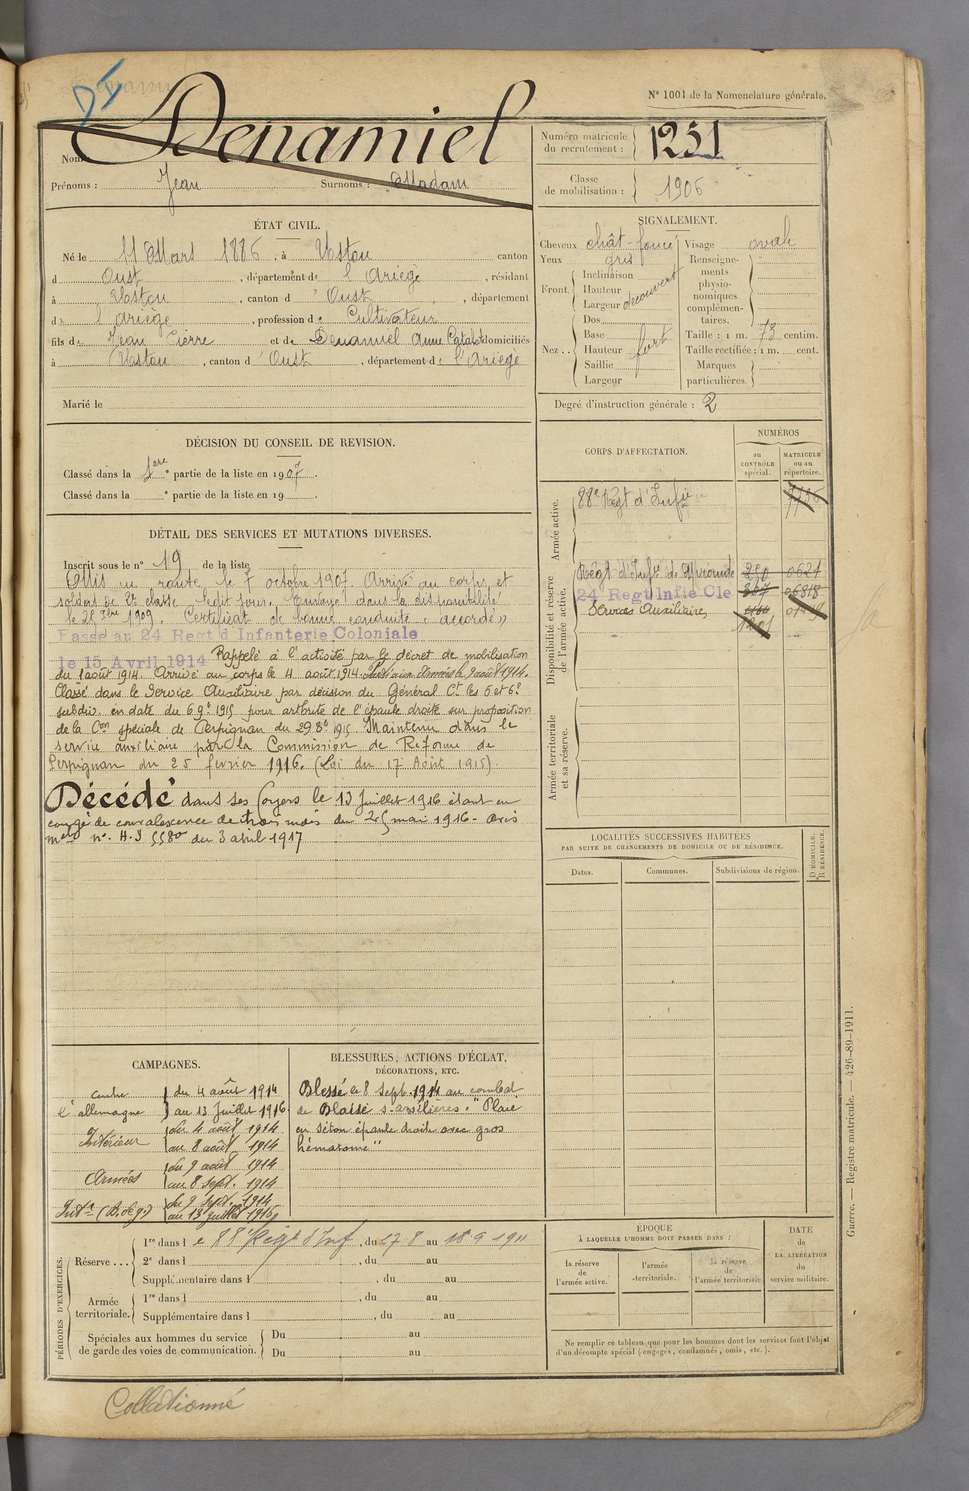 N° 1001 de la Nomenclature générale.
Nom Denamiel
Prénoms : Jean Surnoms : Madam
Numéro matricule du recrutement : 1231
Classe de mobilisation : 1906
ÉTAT CIVIL.
Né le 11 Mars 1886, à Ustou canton
d Oust, département de l'Ariège, résidant
à Ustou, canton d'Oust, département
de l'Ariège, profession de Cultivateur
fils de Jean Pierre et de Denamiel Anne Catal domiciliés
à Ustou, canton d'Oust, département de l'Ariège
Marié le
SIGNALEMENT.
Cheveux chât-foncé
Yeux gris
Front. Inclinaison Hauteur Largeur découvert
Nez.. Dos Base Hauteur Saillie Largeur fort
Visage ovale
Renseignements physionomiques complémentaires.
Taille : 1 m. 73 centim.
Taille rectifiée : 1 m. cent.
Marques particulières.
Degré d'instruction générale : 2
DÉCISION DU CONSEIL DE REVISION.
Classé dans la 1ère partie de la liste en 1907.
Classé dans la e partie de la liste en 19 .
CORPS D'AFFECTATION.
NUMÉROS
au CONTRÔLE spécial.
MATRICULE ou au répertoire.
Armée active.
88e Régt d'Infie
Disponibilité et réserve de l'armée active.
Régt d'Infie de
24 Regt Infie Cle
Services Auxiliaires
Armée territoriale et sa réserve.
DÉTAIL DES SERVICES ET MUTATIONS DIVERSES.
Inscrit sous le n° 19 de la liste
Mis en route le 7 octobre 1907. Arrivé au corps et
soldat de 2e classe ledit jour. Envoyé dans la disponibilité
le 25 7bre 1909. Certificat de bonne conduite "accordé"
Passé au 24 Regt d'Infanterie Coloniale
le 15 Avril 1914 Rappelé à l'activité par le décret de mobilisation
du 1 août 1914. Arrivé au corps le 4 août 1914. aux Armées le 9 août 1914.
Classé dans le Service Auxiliaire par décision du Général Ct les 5 et 6e
subdiv. en date du 6 9e 1915 pour arthrite de l'épaule droite sur proposition
de la Con spéciale de Perpignan du 29 8e 1915. Maintenu dans le
service auxiliaire par la Commission de Réforme de
Perpignan du 25 février 1916. (Loi du 17 Août 1915).
Décédé dans ses foyers le 13 Juillet 1916 étant en
congé de convalescence de trois mois du 25 mai 1916 - avis
mel n° A.J 5580 du 3 avril 1917
LOCALITÉS SUCCESSIVES HABITÉES
PAR SUITE DE CHANGEMENTS DE DOMICILE OU DE RÉSIDENCE.
Dates. Communes. Subdivisions de région. D DOMICILE. R RÉSIDENCE.
CAMPAGNES.
contre l'allemagne du 4 août 1914 au 13 Juillet 1916
Intérieur du 4 août 1914 au 8 août 1914
Armées du 9 août 1914 au 8 Sept. 1914
Intr (B. de g.) du 9 Sept. 1914 au 13 juillet 1916
BLESSURES, ACTIONS D'ÉCLAT,
DÉCORATIONS, ETC.
Blessé le 8 Sept. 1914 au combat
de Blaise s-arzilières. "Plaie
en séton épaule droite avec gros
hématome"
PÉRIODES D'EXERCICES.
Réserve ...
1re dans le 88e Régt d'Inf, du 17 8 au 18 9 1911
2e dans l , du au
Supplémentaire dans l , du au
Armée territoriale.
1re dans l , du au
Supplémentaire dans l , du au
Spéciales aux hommes du service de garde des voies de communication.
Du au
Du au
ÉPOQUE
À LAQUELLE L'HOMME DOIT PASSER DANS :
la réserve de l'armée active.
l'armée territoriale.
la réserve de l'armée territoriale
DATE de LA LIBÉRATION du service militaire.
Ne remplir ce tableau que pour les hommes dont les services font l'objet
d'un décompte spécial (engagés, condamnés, omis, etc.).
Guerre. — Registre matricule. — 426-89-1911.
Collationné